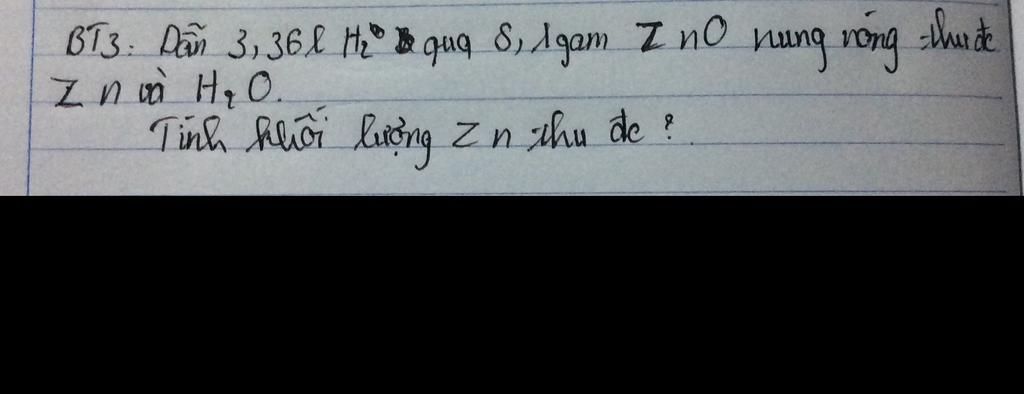 BT3: Dẫn 3,36l H₂ qua 8,1gam ZnO nung nóng thu đc
Zn và H₂O.
Tính khối lượng Zn thu đc ?